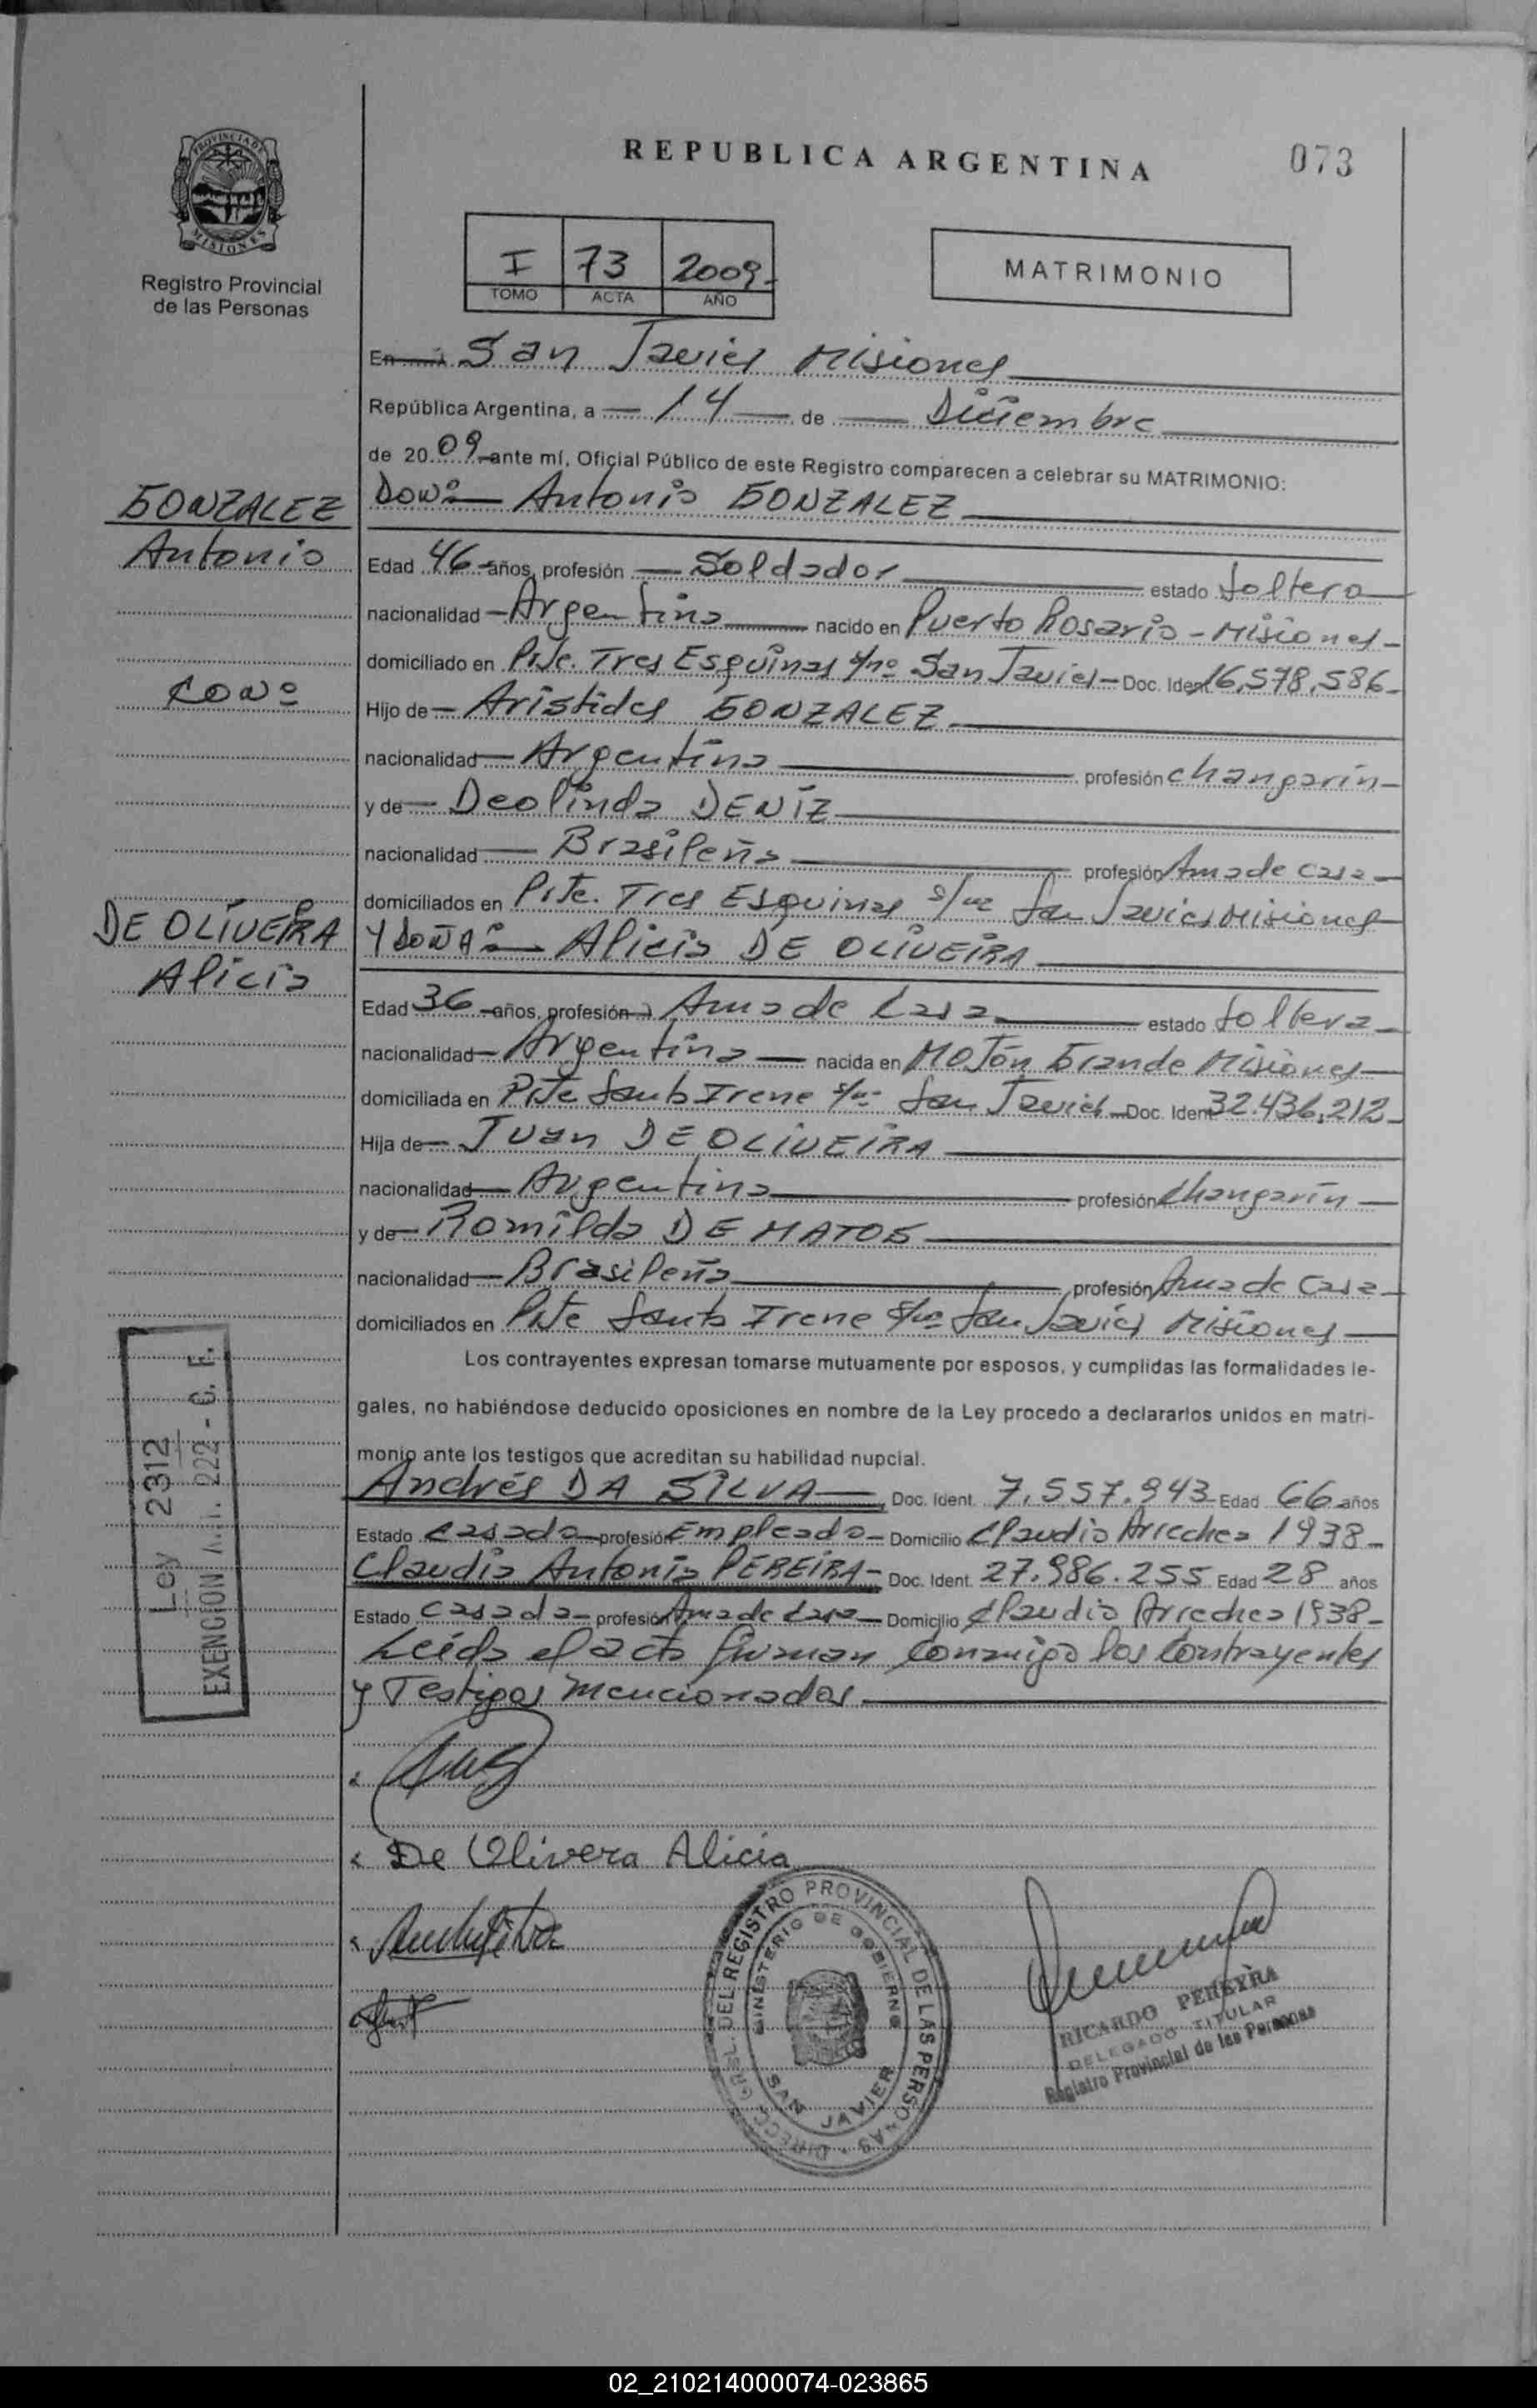 PROVINCIA DE
MISIONES
Registro Provincial
de las Personas
REPUBLICA ARGENTINA
073
I 73 2009
TOMO ACTA AÑO
MATRIMONIO
En San Javier Misiones
República Argentina, a 14 de Diciembre
de 2009 ante mí, Oficial Público de este Registro comparecen a celebrar su MATRIMONIO:
GONZALEZ
Antonio
CON
DE OLIVEIRA
Alicia
DON: Antonio GONZALEZ
Edad 46 años, profesión Soldador estado Soltero
nacionalidad Argentina nacido en Puerto Rosario - Misiones
domiciliado en Pje. Tres Esquinas s/nº San Javier Doc. Ident 16,578,586
Hijo de Aristides GONZALEZ
nacionalidad Argentina profesión changarín
y de Deolinda DENIZ
nacionalidad Brasileña profesión Ama de casa
domiciliados en Pje. Tres Esquinas s/nº San Javier Misiones
Y DOÑA: Alicia DE OLIVEIRA
Edad 36 años, profesión Ama de Casa estado Soltera
nacionalidad Argentina nacida en Mojón Grande Misiones
domiciliada en Pje Santa Irene s/nº San Javier Doc. Ident 32.436,212
Hija de Juan DE OLIVEIRA
nacionalidad Argentina profesión Changarín
y de Romilda DE MATOS
nacionalidad Brasileña profesión Ama de Casa
domiciliados en Pje Santa Irene s/nº San Javier Misiones
Los contrayentes expresan tomarse mutuamente por esposos, y cumplidas las formalidades le-
gales, no habiéndose deducido oposiciones en nombre de la Ley procedo a declararlos unidos en matri-
monio ante los testigos que acreditan su habilidad nupcial.
Andrés DA SILVA Doc. Ident. 7,557.943 Edad 66 años
Estado casado profesión Empleado Domicilio Claudio Arrechea 1938
Claudia Antonia PEREIRA Doc. Ident. 27.986.255 Edad 28 años
Estado casada profesión Ama de Casa Domicilio Claudio Arrechea 1938
Leída el acta firman Conmigo los Contrayentes
y Testigos mencionados
Ley 2312
EXENCION Art. 222 - C. F.
De Olivera Alicia
DIRECC. GRAL. DEL REGISTRO PROVINCIAL DE LAS PERSONAS
MINISTERIO DE GOBIERNO
SAN JAVIER
RICARDO PEREYRA
DELEGADO TITULAR
Registro Provincial de las Personas
02_210214000074-023865